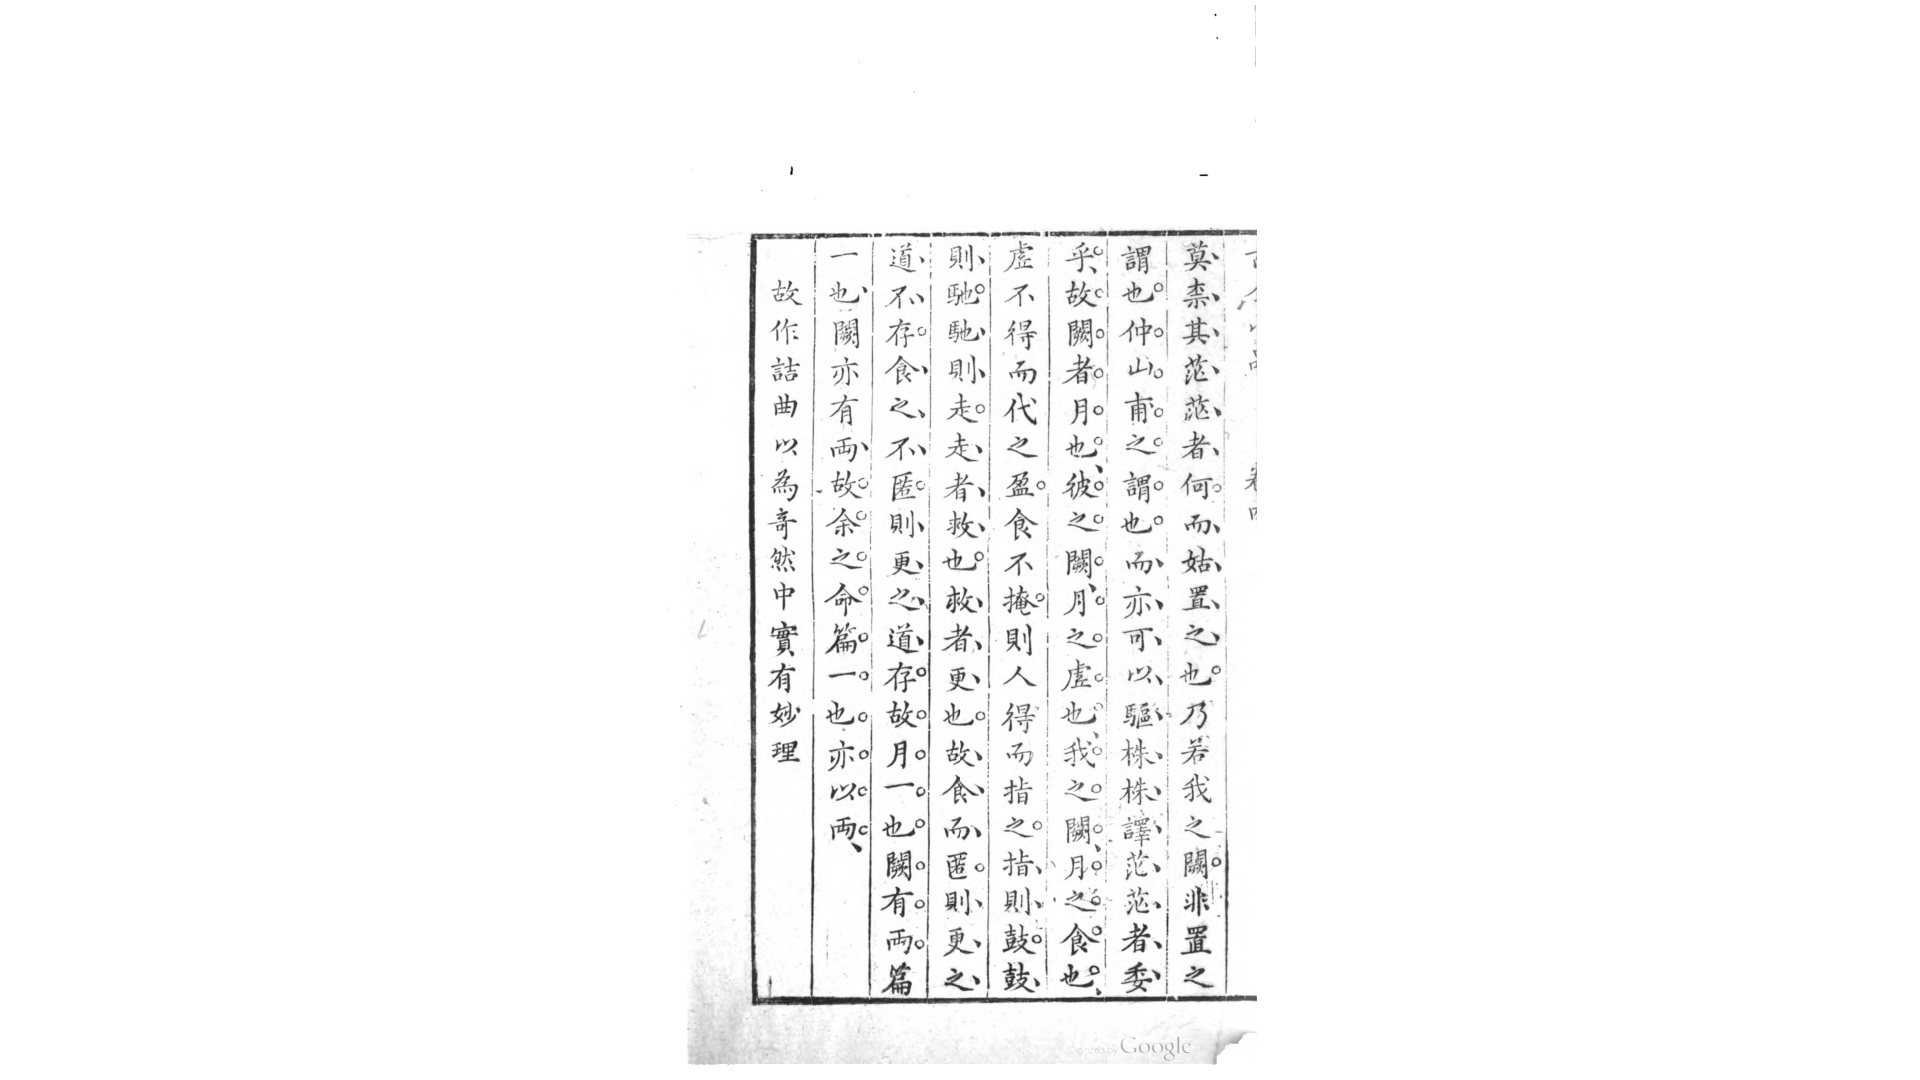 莫柰其茫茫者何而姑置之也乃若我之闕非置之
謂也仲山甫之謂也而亦可以驅株株譯茫茫者委
乎故闕者月也彼之闕月之虛也我之闕月之食也
虛不得而代之盈食不掩則人得而指之指則鼓鼓
則馳馳則走走者救也救者更也故食而匿則更之
道不存食之不匿則更之道存故月一也闕有兩篇
一也闕亦有兩故余之命篇一也亦以兩
故作詰曲以為奇然中實有妙理
Digitized by Google